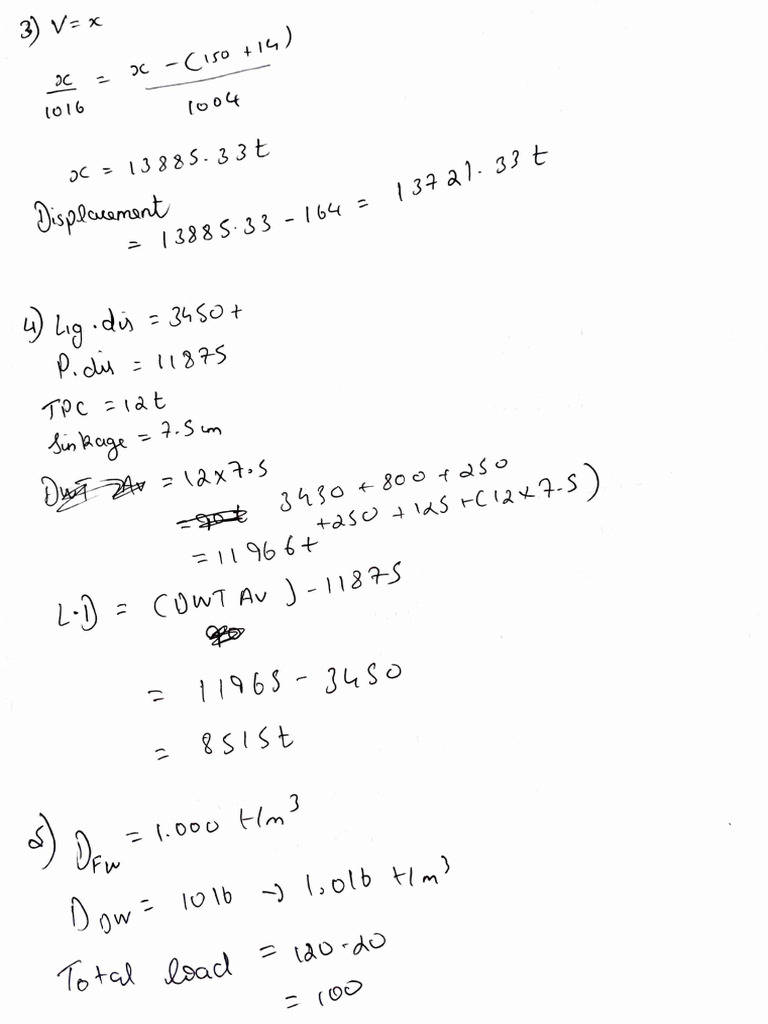 3) V = x
x/1016 = x - (150 + 14)/1004
x = 13885.33 t
Displacement
= 13885.33 - 164 = 13721.33 t
4) Lig. dis = 3450 t
P. dis = 11875
TPC = 12 t
Sinkage = 7.5 cm
DWT Av = 12 x 7.5
= 90 t 3450 + 800 + 250
+250 + 125 + (12 x 7.5)
= 11966 t
L.D = (DWT AV) - 11875
= 11965 - 3450
= 8515 t
5) D_FW = 1.000 t/m³
D_DW = 1016 → 1.016 t/m³
Total load = 120-20
= 100